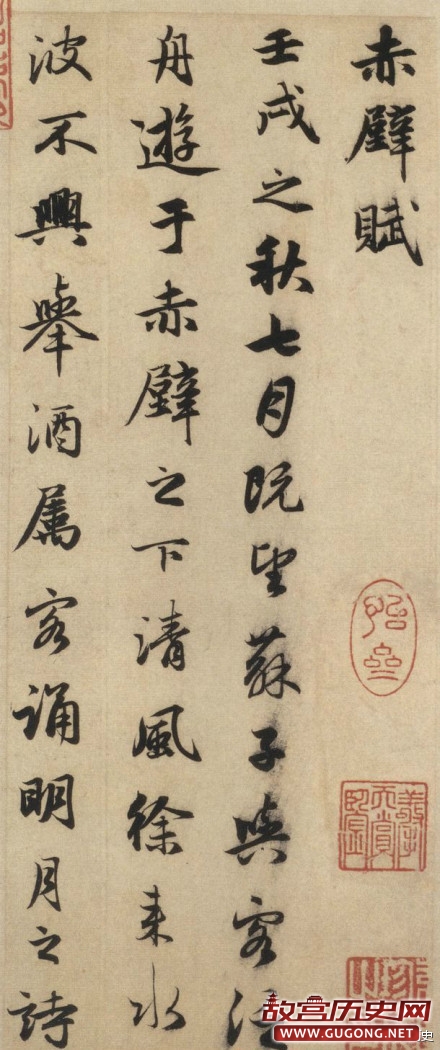 赤壁賦
壬戌之秋七月既望蘇子與客泛
舟遊于赤壁之下清風徐来水
波不興舉酒属客誦明月之詩
故宫历史网
WWW.GUGONG.NET
史